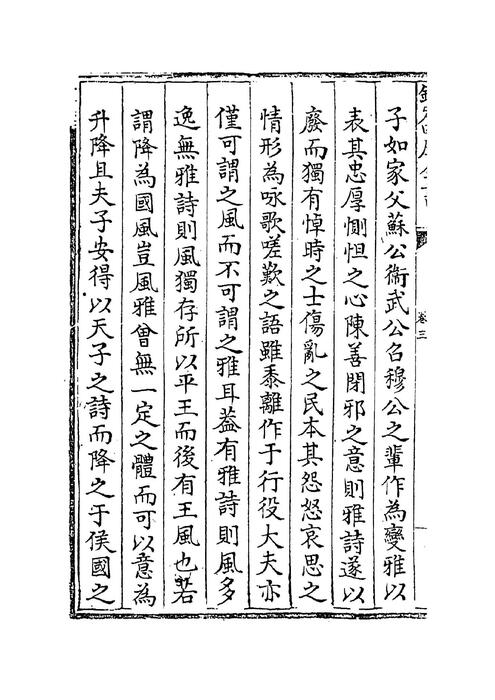 子如家父蘇公衞武公召穆公之軰作為變雅以
表其忠厚惻怛之心陳善閉邪之意則雅詩遂以
廢而獨有悼時之士傷亂之民本其怨怒哀思之
情形為咏歌嗟歎之語雖黍離作于行役大夫亦
僅可謂之風而不可謂之雅耳葢有雅詩則風多
逸無雅詩則風獨存所以平王而後有王風也若
謂降為國風豈風雅曾無一定之體而可以意為
升降且夫子安得以天子之詩而降之于侯國之
卷三